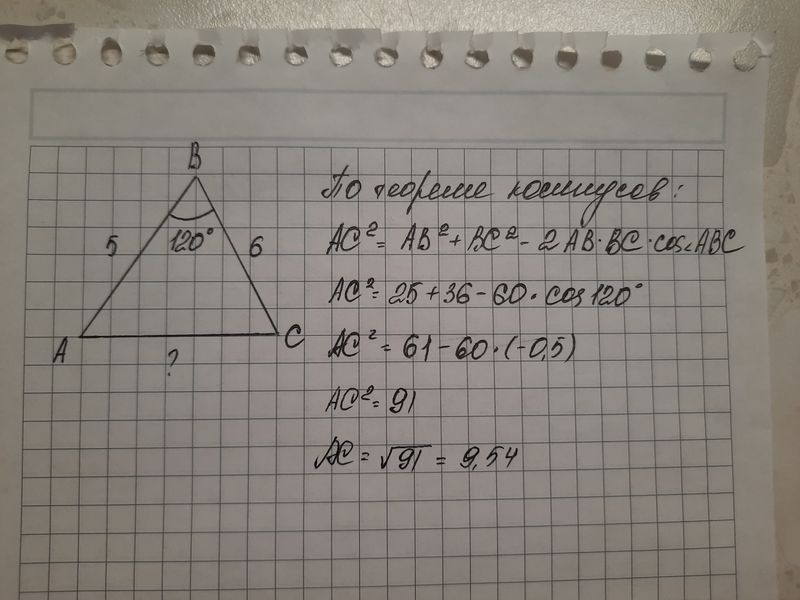 B
5
120°
6
A
C
?
По теореме косинусов:
AC² = AB² + BC² - 2AB·BC·cos∠ABC
AC² = 25 + 36 - 60·cos120°
AC² = 61 - 60·(-0,5)
AC² = 91
AC = √91 = 9,54